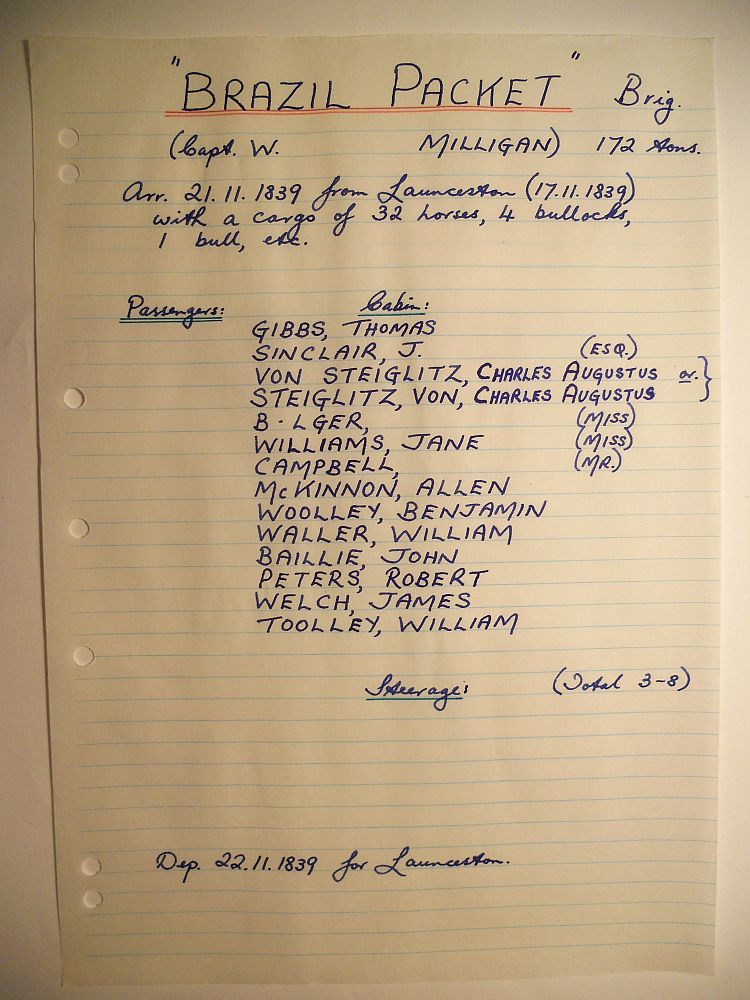 "BRAZIL PACKET" Brig.
(Capt. W. MILLIGAN) 172 tons.
Arr. 21.11.1839 from Launceston (17.11.1839)
with a cargo of 32 horses, 4 bullocks,
1 bull, etc.
Passengers: Cabin:
GIBBS, THOMAS
SINCLAIR, J. (ESQ.)
VON STEIGLITZ, CHARLES AUGUSTUS or. }
STEIGLITZ, VON, CHARLES AUGUSTUS
B·LGER, (MISS)
WILLIAMS, JANE (MISS)
CAMPBELL, (MR.)
McKINNON, ALLEN
WOOLLEY, BENJAMIN
WALLER, WILLIAM
BAILLIE, JOHN
PETERS, ROBERT
WELCH, JAMES
TOOLLEY, WILLIAM
Steerage: (Total 3-8)
Dep. 22.11.1839 for Launceston.